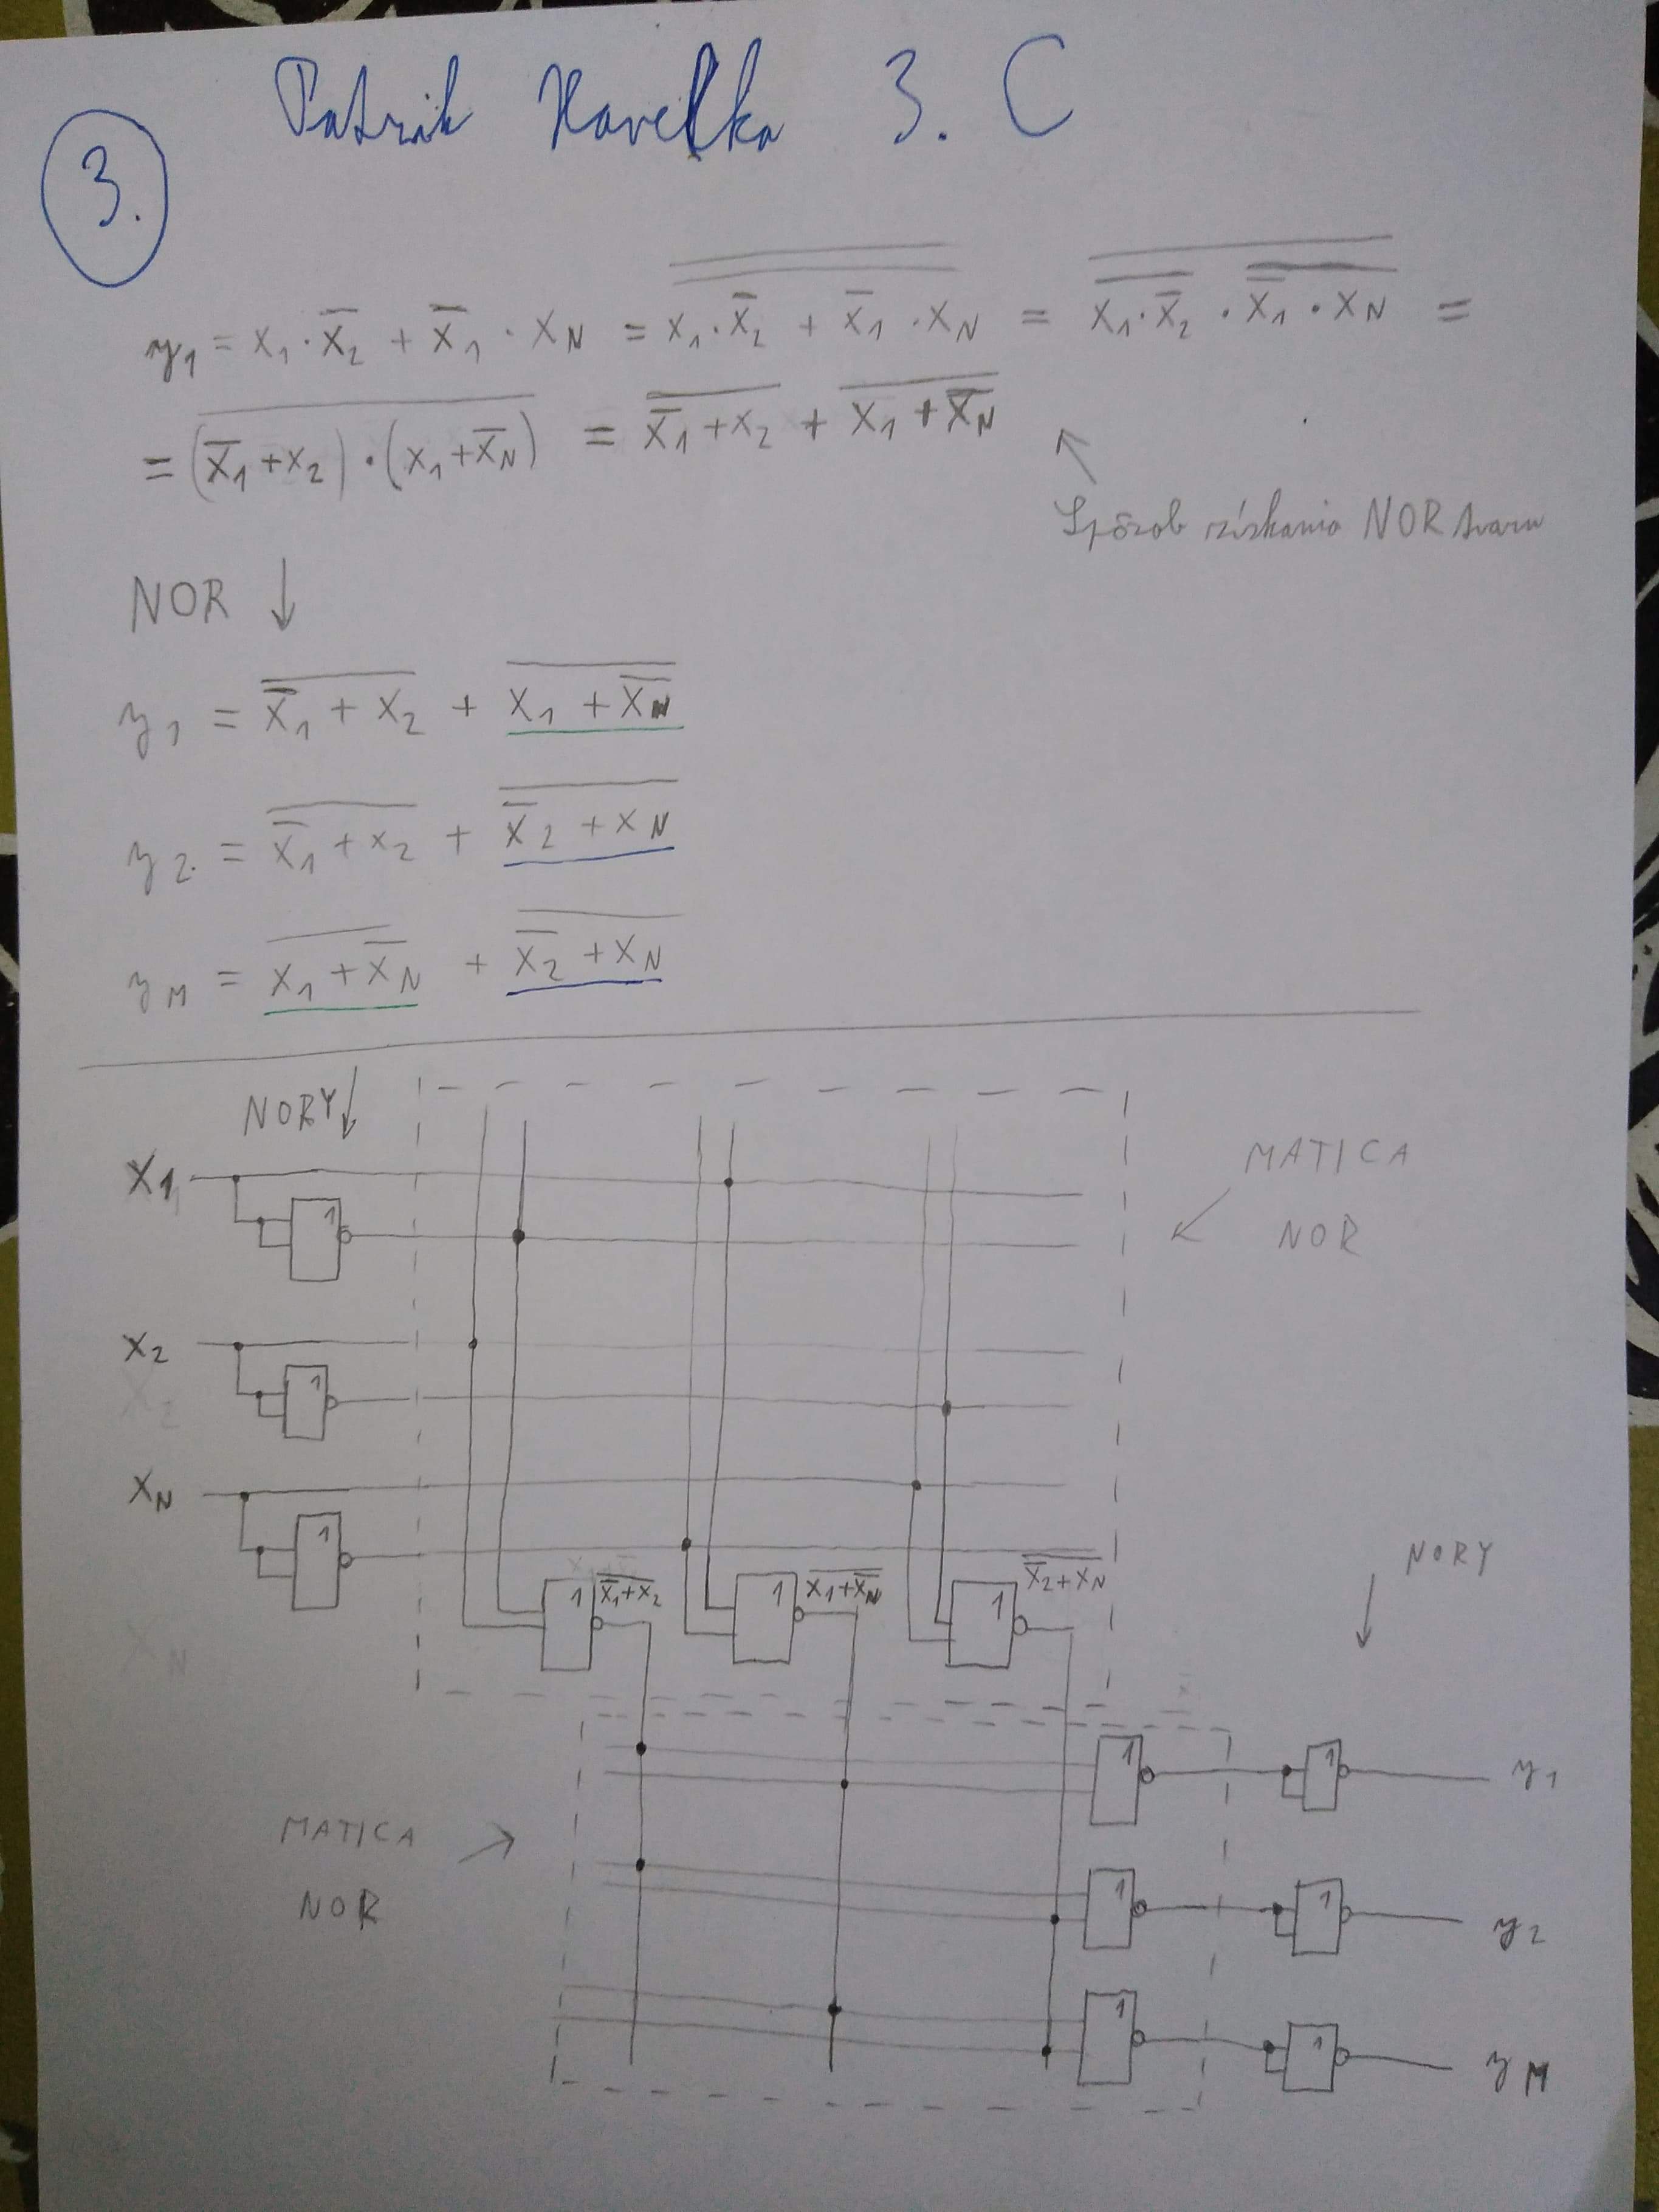 Patrik Havelka 3. C
3.
y₁ = x₁·x̅₂ + x̅₁·x_N = \overline{\overline{x₁·x̅₂ + x̅₁·x_N}} = \overline{\overline{\overline{x₁·x̅₂}·\overline{x̅₁·x_N}}} =
= \overline{(x̅₁+x₂)·(x₁+x̅_N)} = \overline{x̅₁+x₂} + \overline{x₁+x̅_N}
Spôsob získania NOR tvaru
NOR ↓
y₁ = \overline{x̅₁ + x₂} + \overline{x₁ + x̅_N}
y₂ = \overline{x̅₁ + x₂} + \overline{x̅₂ + x_N}
y_M = \overline{x₁ + x̅_N} + \overline{x̅₂ + x_N}
NORY ↓
X₁
1
MATICA
NOR
X₂
1
X_N
1
NORY
1 \overline{x̅₁+x₂} 1 \overline{x₁+x̅_N} 1 \overline{x̅₂+x_N}
1 1 y₁
MATICA
NOR
1 1 y₂
1 1 y_M